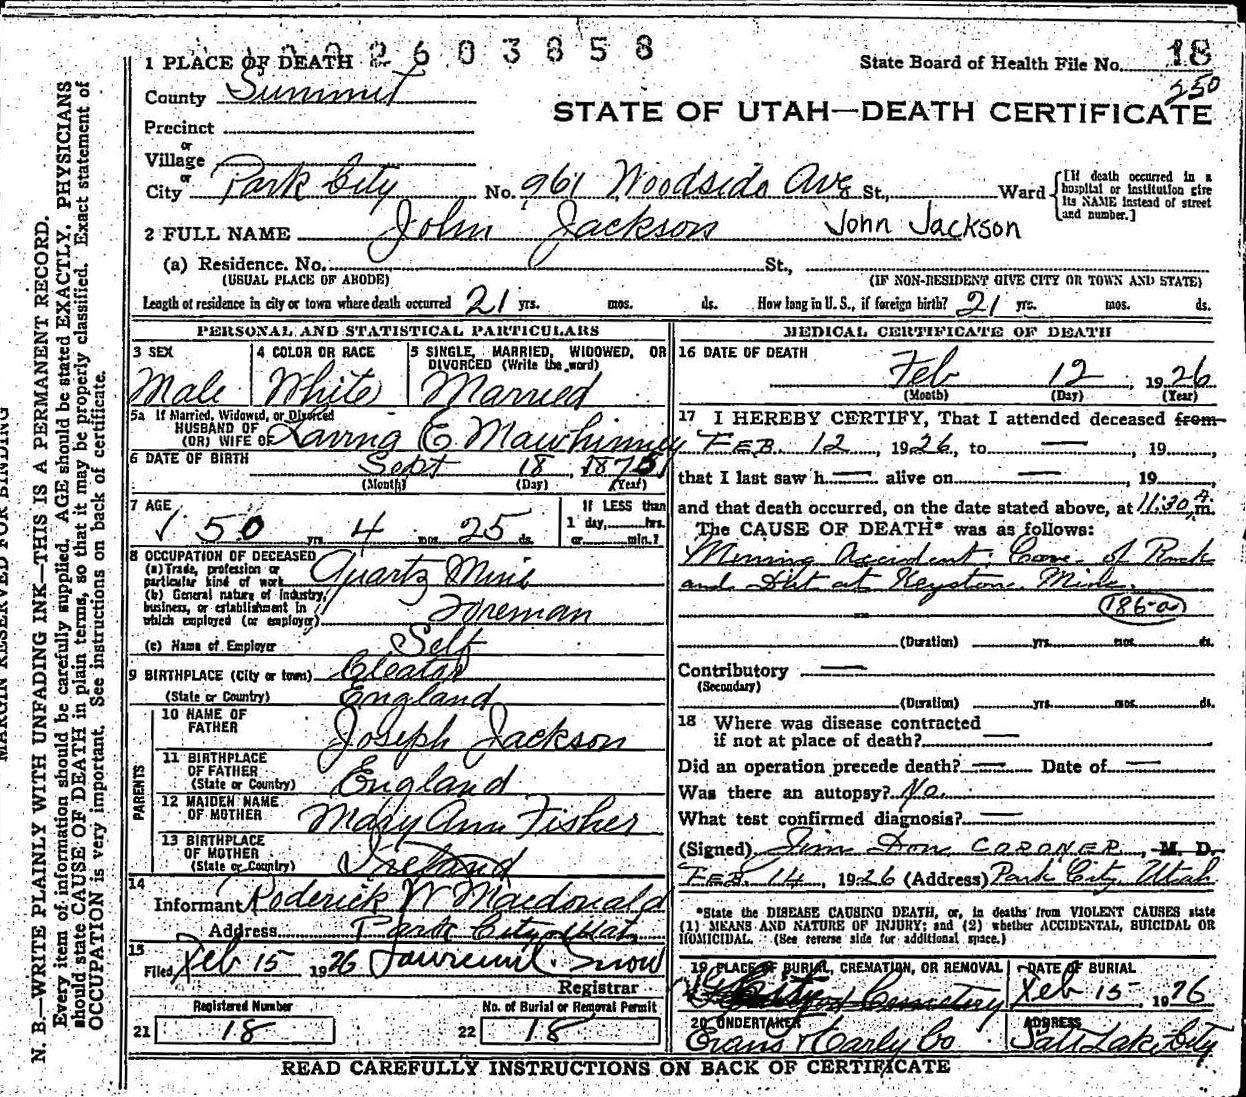 2603858
1 PLACE OF DEATH
State Board of Health File No. 18
250
County Summit
STATE OF UTAH—DEATH CERTIFICATE
Precinct
or
Village
or
City Park City No. 961 Woodside Ave St., Ward
[If death occurred in a hospital or institution give its NAME instead of street and number.]
2 FULL NAME John Jackson John Jackson
(a) Residence. No. St.,
(USUAL PLACE OF ABODE) (IF NON-RESIDENT GIVE CITY OR TOWN AND STATE)
Length of residence in city or town where death occurred 21 yrs. mos. ds. How long in U. S., if foreign birth? 21 yrs. mos. ds.
PERSONAL AND STATISTICAL PARTICULARS
3 SEX
Male
4 COLOR OR RACE
White
5 SINGLE, MARRIED, WIDOWED, OR
DIVORCED (Write the word)
Married
5a If Married, Widowed, or Divorced
HUSBAND OF
(OR) WIFE OF E Mawhinney
6 DATE OF BIRTH Sept 18 1875
(Month) (Day) (Year)
7 AGE
50 yrs. 4 mos. 25 ds.
If LESS than
1 day, hrs.
or min.?
8 OCCUPATION OF DECEASED
(a) Trade, profession or
particular kind of work Quartz Mine
(b) General nature of Industry,
business, or establishment in
which employed (or employer) Foreman
(c) Name of Employer Self
9 BIRTHPLACE (City or town) Cleator
(State or Country) England
PARENTS
10 NAME OF
FATHER Joseph Jackson
11 BIRTHPLACE
OF FATHER
(State or Country) England
12 MAIDEN NAME
OF MOTHER Mary Ann Fisher
13 BIRTHPLACE
OF MOTHER
(State or Country) Ireland
14
Informant Roderick W Macdonald
Address Park City Utah
15
Filed Feb 15 1926 Snow
Registrar
Registered Number
21 18
No. of Burial or Removal Permit
22 18
MEDICAL CERTIFICATE OF DEATH
16 DATE OF DEATH
Feb 12, 1926
(Month) (Day) (Year)
17 I HEREBY CERTIFY, That I attended deceased from
FEB. 12, 1926, to —, 19,
that I last saw h— alive on —, 19,
and that death occurred, on the date stated above, at 11:30 A m.
The CAUSE OF DEATH* was as follows:
Mining Accident. Cave of Rock
and Dirt at Keystone Mine.
186-a
(Duration) yrs. mos. ds.
Contributory —
(Secondary)
(Duration) yrs. mos. ds.
18 Where was disease contracted
if not at place of death? —
Did an operation precede death? — Date of —
Was there an autopsy? No.
What test confirmed diagnosis? —
(Signed) Jim Don CORONER, M. D.
FEB. 14, 1926 (Address) Park City Utah
*State the DISEASE CAUSING DEATH, or, in deaths from VIOLENT CAUSES state
(1) MEANS AND NATURE OF INJURY; and (2) whether ACCIDENTAL, SUICIDAL OR
HOMICIDAL. (See reverse side for additional space.)
19 PLACE OF BURIAL, CREMATION, OR REMOVAL
Cemetery
DATE OF BURIAL
Feb 15 1926
20 UNDERTAKER
Evans & Early Co
ADDRESS
Salt Lake City
READ CAREFULLY INSTRUCTIONS ON BACK OF CERTIFICATE
MARGIN RESERVED FOR BINDING
N. B.—WRITE PLAINLY WITH UNFADING INK—THIS IS A PERMANENT RECORD.
Every item of information should be carefully supplied. AGE should be stated EXACTLY. PHYSICIANS
should state CAUSE OF DEATH in plain terms, so that it may be properly classified. Exact statement of
OCCUPATION is very important. See instructions on back of certificate.